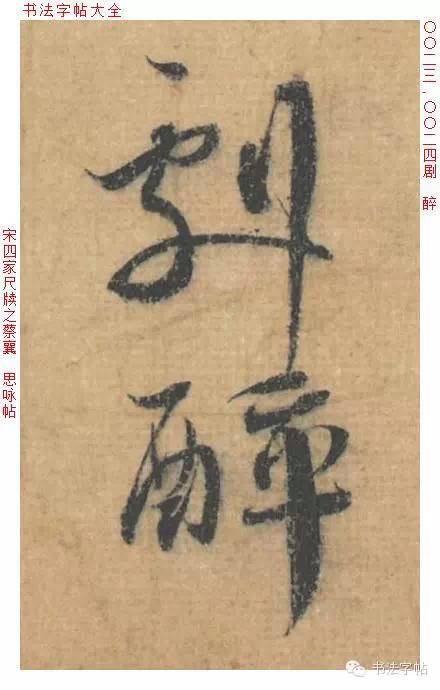 书法字帖大全
〇〇二三-〇〇二四剧 醉
劇
醉
宋四家尺牍之蔡襄 思咏帖
书法字帖